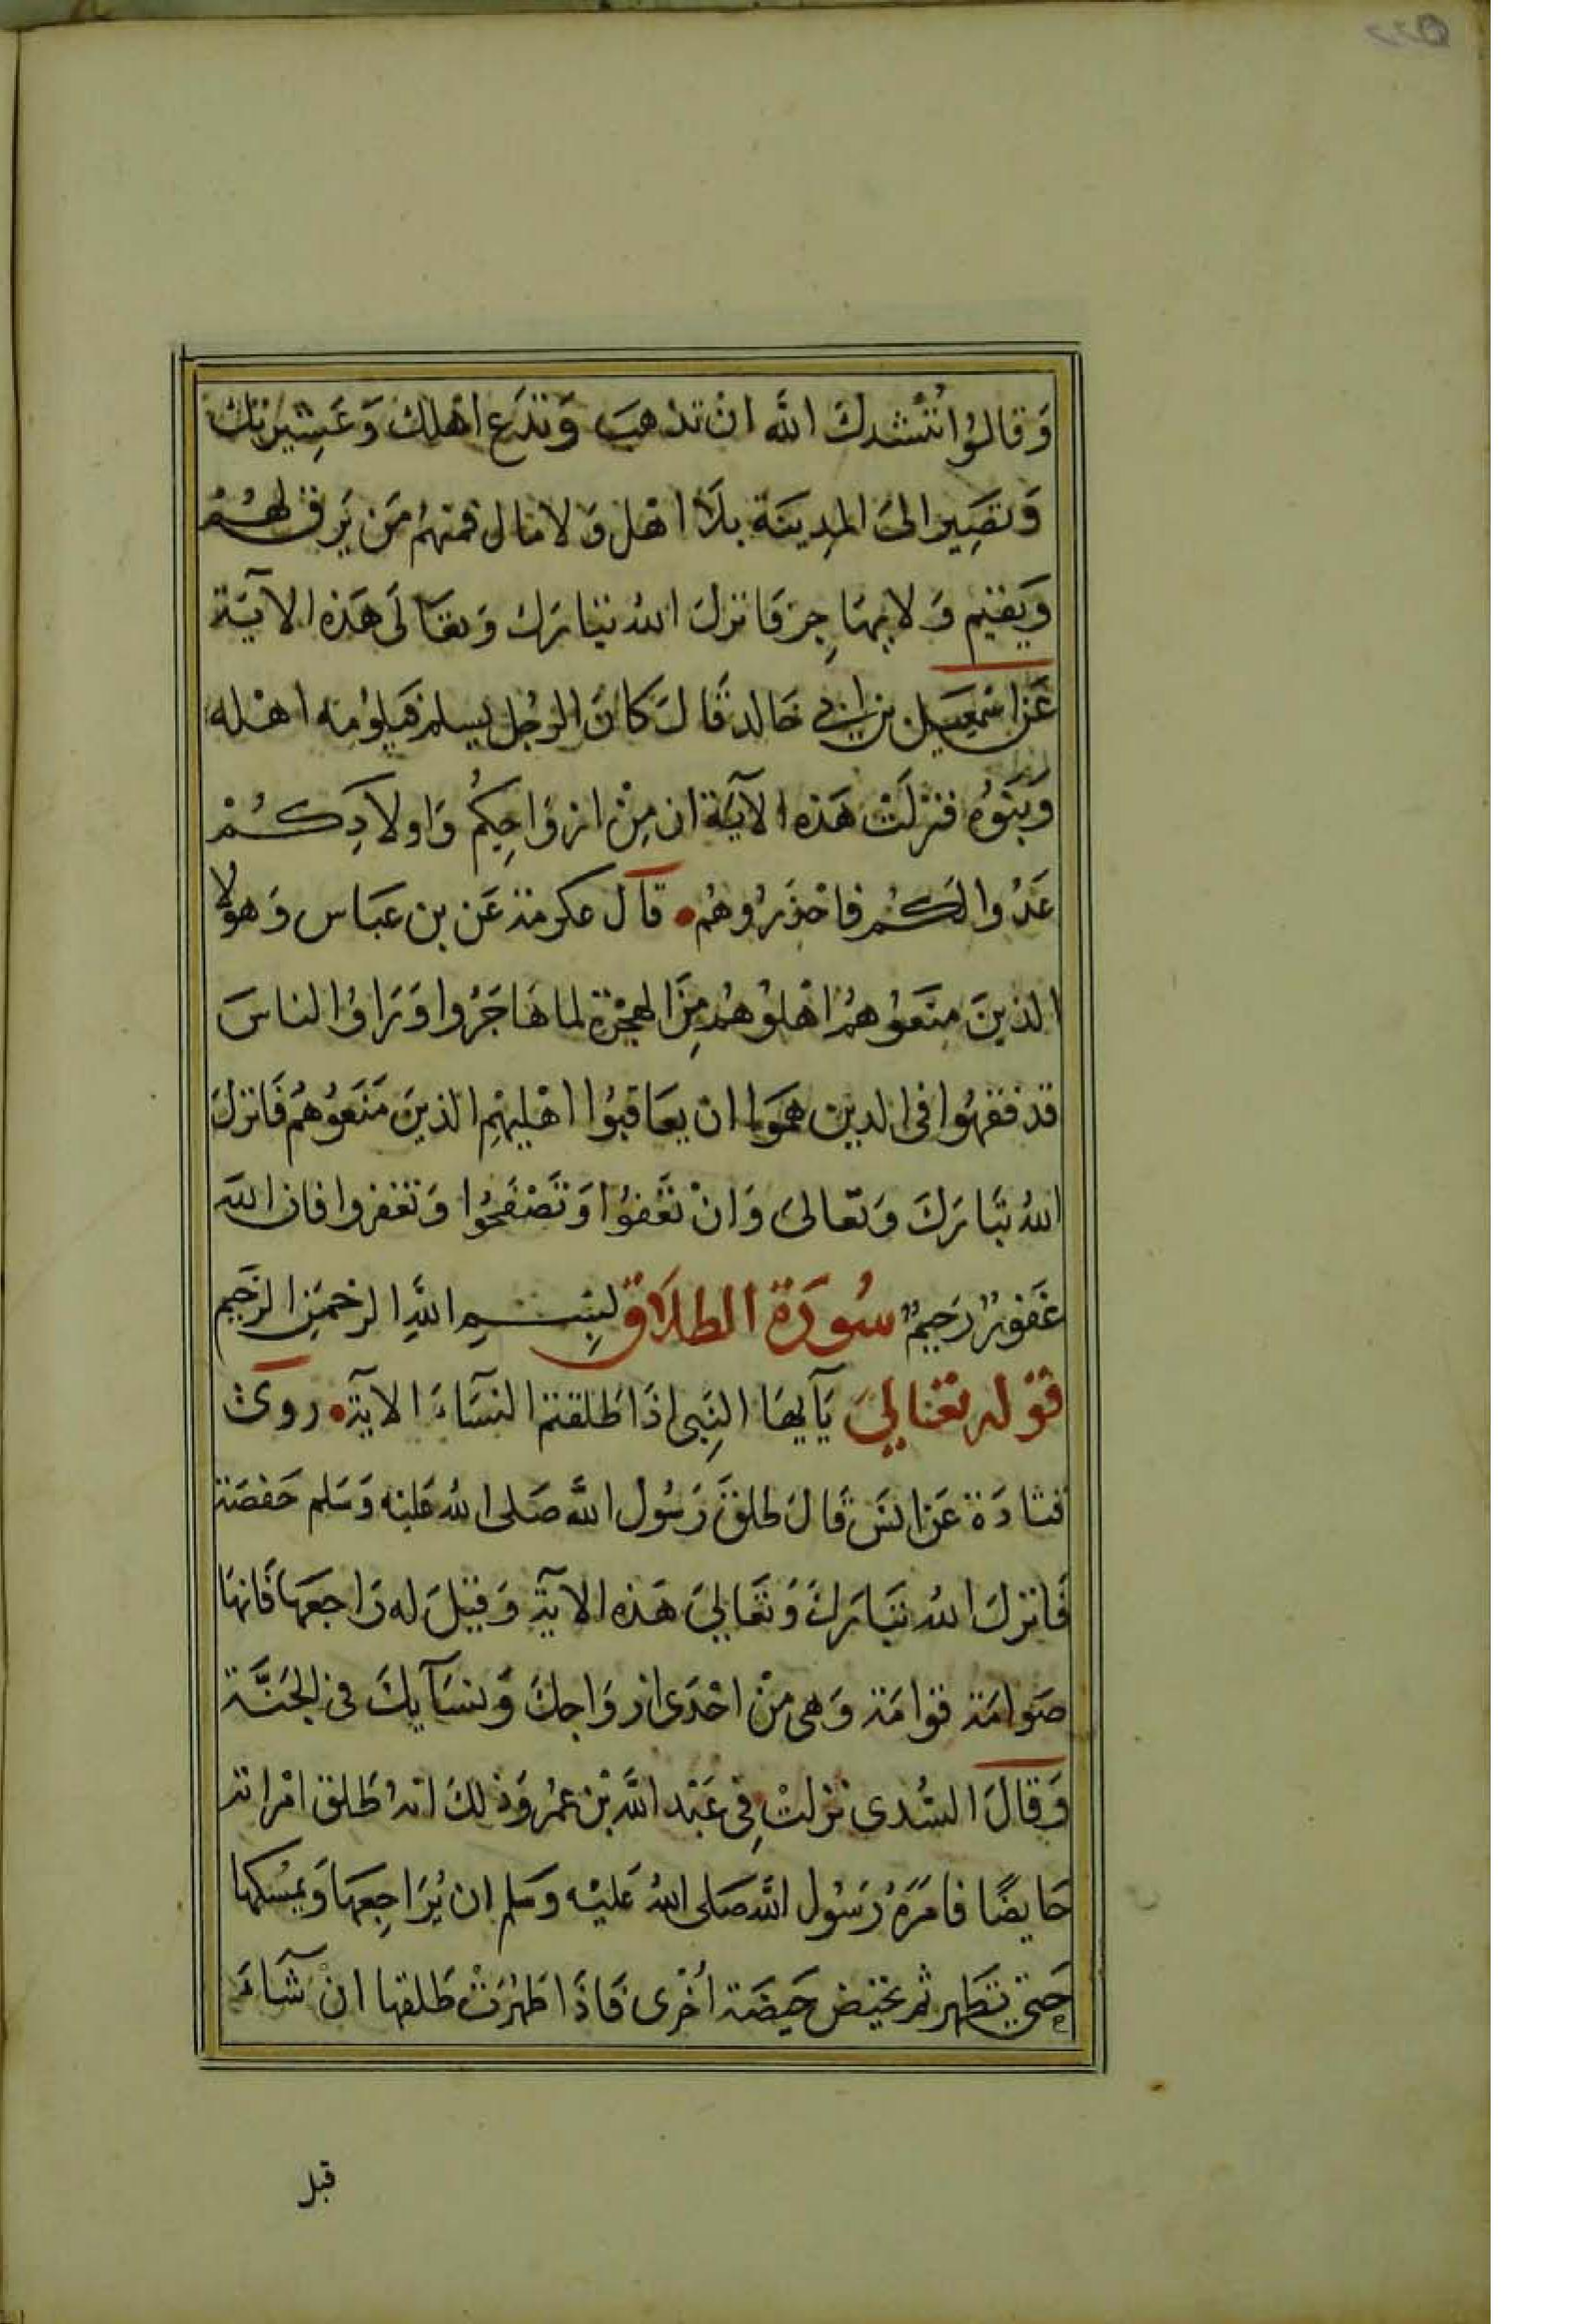 وَقالوُا نُنْشدكَ اللَّه انْ تذهبَ وَتدَع اهْلك وَعَشِيرتك
وَتصَِير الىَ المدِينَة بلَا اهْل وَلا مَال فمنهُم مَن يَرق لهُمْ
وَيقيم وَلا يهَاجِر فَانزلَ اللهُ تبَارَك وَتعَالَى هَذه الآيَة
عَن اسْمعِيل بن ابي خَالد قَالَ كانَ الرجُل يسلم فيَلوُمه اهْله
وَبَنوُه فنزلَتْ هَذه الآيَة ان مِنْ ازوَاجِكُم وَاولاَدِكُمْ
عَدُوا لَكُم فاحْذَرُوهُم قآل عكرمة عَن بن عبَاس وَهولا
الذينَ منَعوُهمُ اهْلوُهُم مِنَ الهجْرَة لما هَاجَرُوا وَرَاوُا الناسَ
قد فقهوُا فى الدين همَوا ان يعَاقبوُا اهْليْهِم الذينَ مَنَعوُهمُ فَانزلَ
اللهُ تبَارَكَ وَتعَالىَ وَانْ تعْفوُا وَتَصْفَحُوا وَتغفروا فان اللهَ
غَفورٌ رَحيمٌ سُورَة الطلاَق بِسْمِ اللَّهِ الرحْمَنِ الرحَيم
قوْله تعَاليَ يَآيهَا النِبَى اذَا طَلقتم النسَآءَ الآية روىَ
قتادَة عَن انسَ قَالَ طلقَ رَسُول اللَّه صَلى اللهُ عَليْه وَسَلم حَفصَة
فَانزلَ اللهُ تبَارَكَ وَتعَاليَ هَذه الآيَة وَقيْلَ له رَاجعَها فَانهَا
صَوامَة قوامَة وَهى مِنْ احْدَى ازوَاجكَ وَنسَآيكَ فى الجَنَّة
وَقالَ السُدى نزلَتْ فِى عَبْد اللَّه بْن عمُر وَذلكَ انهُ طَلق امْراته
حَايضًا فامَرَهُ رَسُول اللَّه صَلى اللهُ عَليْه وسَلم ان يُرَاجِعهَا وَيمْسكها
حَتى تطَهر ثم تحيْض حَيضَة أخْرى فَاذَا طَهُرَتْ طَلقها انْ شَآءَ
قبل